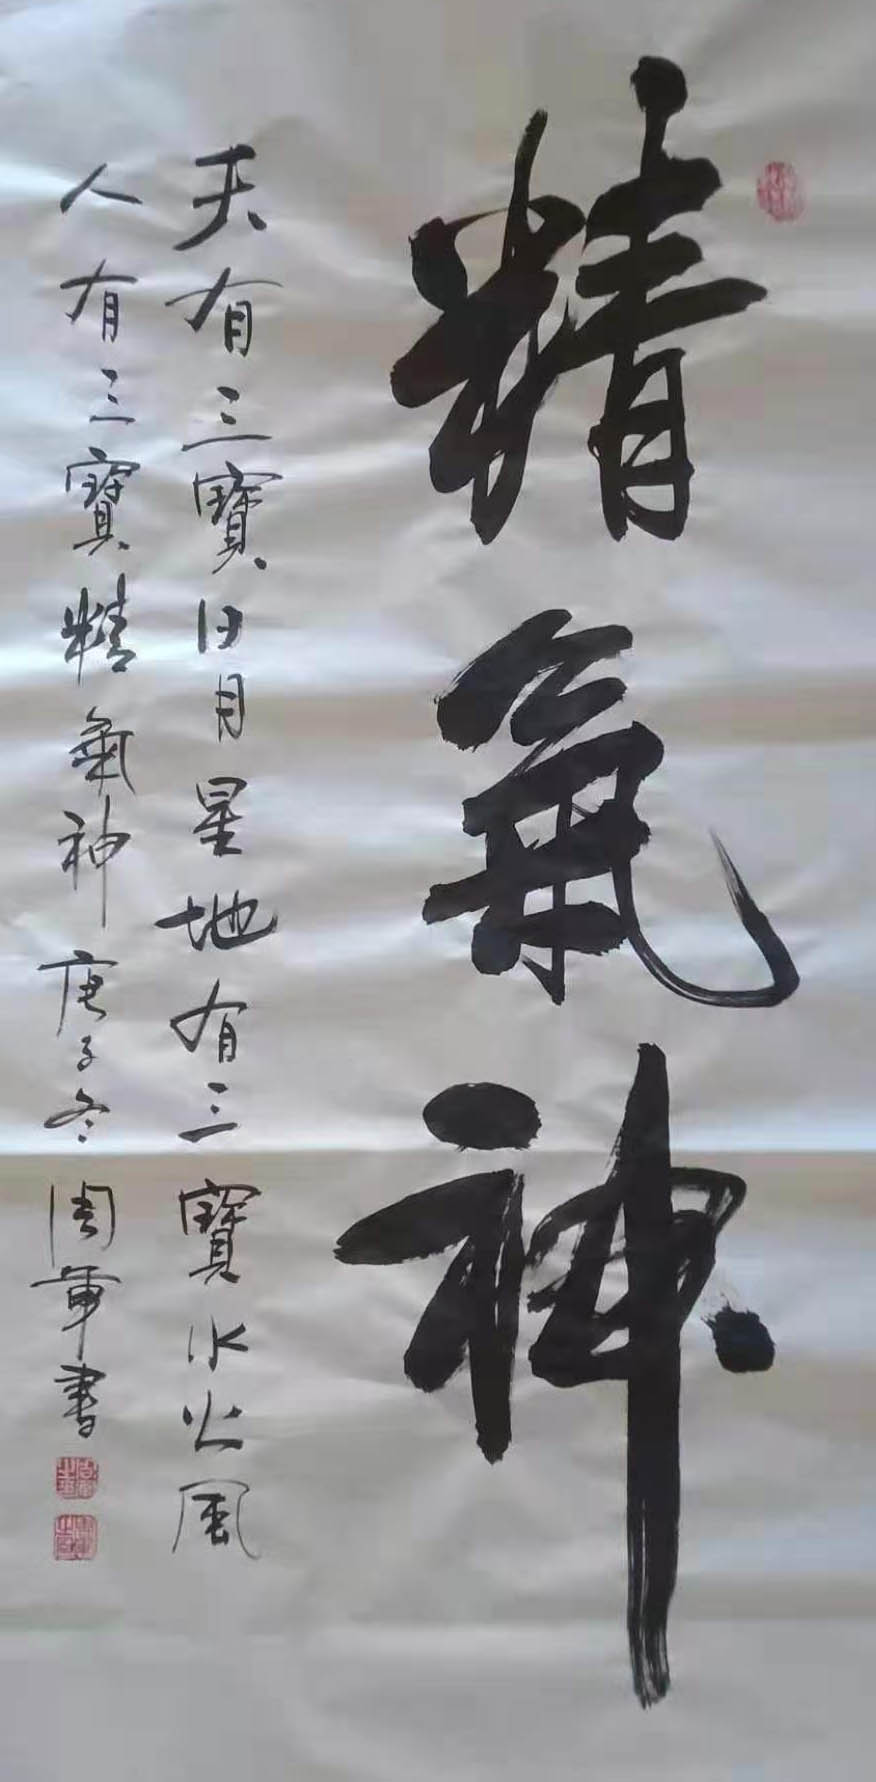 精氣神
天有三寶日月星地有三寶水火風
人有三寶精氣神庚子冬周軍書